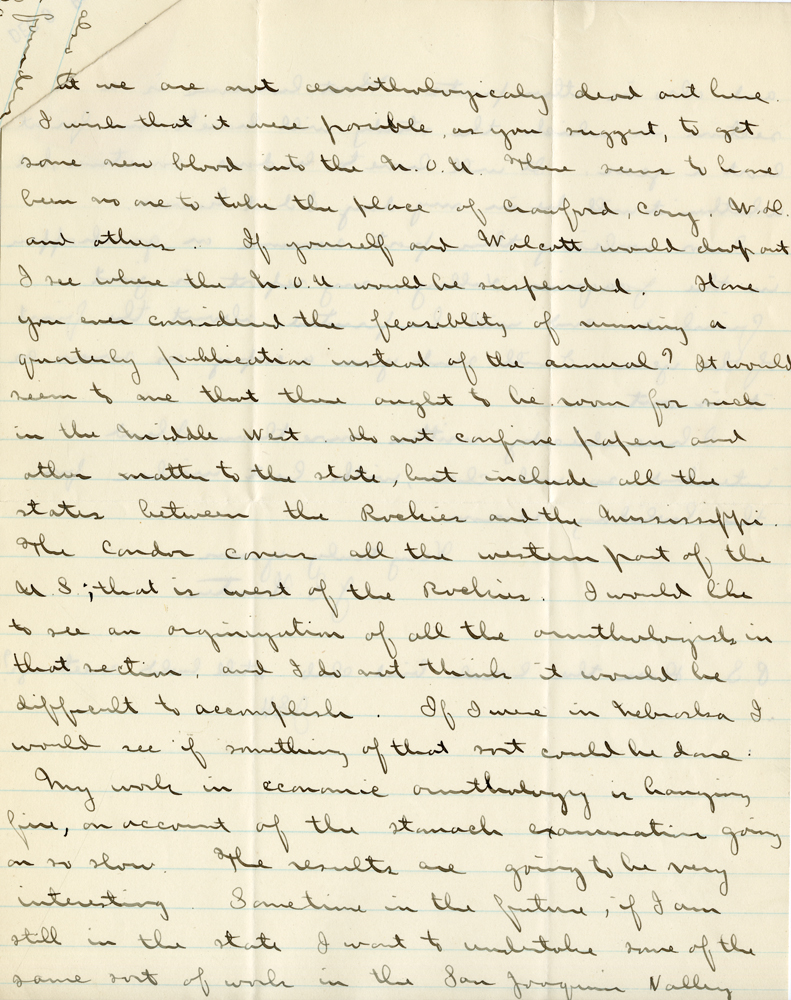 at we are not ornithologicaly dead out here.
I wish that it were possible, as you suggest, to get
some new blood into the N.O.U. There seems to have
been no one to take the place of Crawford, Cary, W.H.
and others. If yourself and Wolcott would drop out
I see where the N.O.U. would be suspended. Have
you ever considered the feasiblity of running a
quarterly publication instead of the annual? It would
seem to me that there ought to be room for such
in the Middle West. Do not confine papers and
other matter to the state, but include all the
states between the Rockies and the Mississippi.
The Condor covers all the western part of the
U.S.; that is west of the Rockies. I would like
to see an orginization of all the ornithologists in
that section, and I do not think it would be
difficult to accomplish. If I were in Nebraska I
would see if something of that sort could be done.
My work in economic ornithology is hanging
fire, on account of the stomach examination going
on so slow. The results are going to be very
interesting. Sometime in the future, if I am
still in the state I want to undertake some of the
same sort of work in the San Joaquin Valley